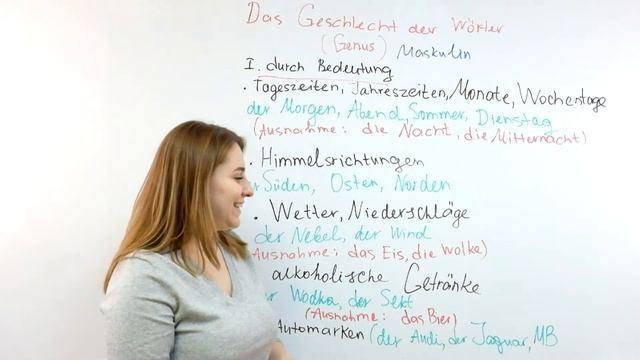 Das Geschlecht der Wörter
(Genus) Maskulin
I. durch Bedeutung
· Tageszeiten, Jahreszeiten, Monate, Wochentage
der Morgen, Abend, Sommer, Dienstag
(Ausnahme: die Nacht, die Mitternacht)
· Himmelsrichtungen
r Süden, Osten, Norden
· Wetter, Niederschläge
der Nebel, der Wind
Ausnahme: das Eis, die Wolke)
alkoholische Getränke
r Wodka, der Sekt
(Ausnahme: das Bier)
Automarken (der Audi, der Jaguar, MB